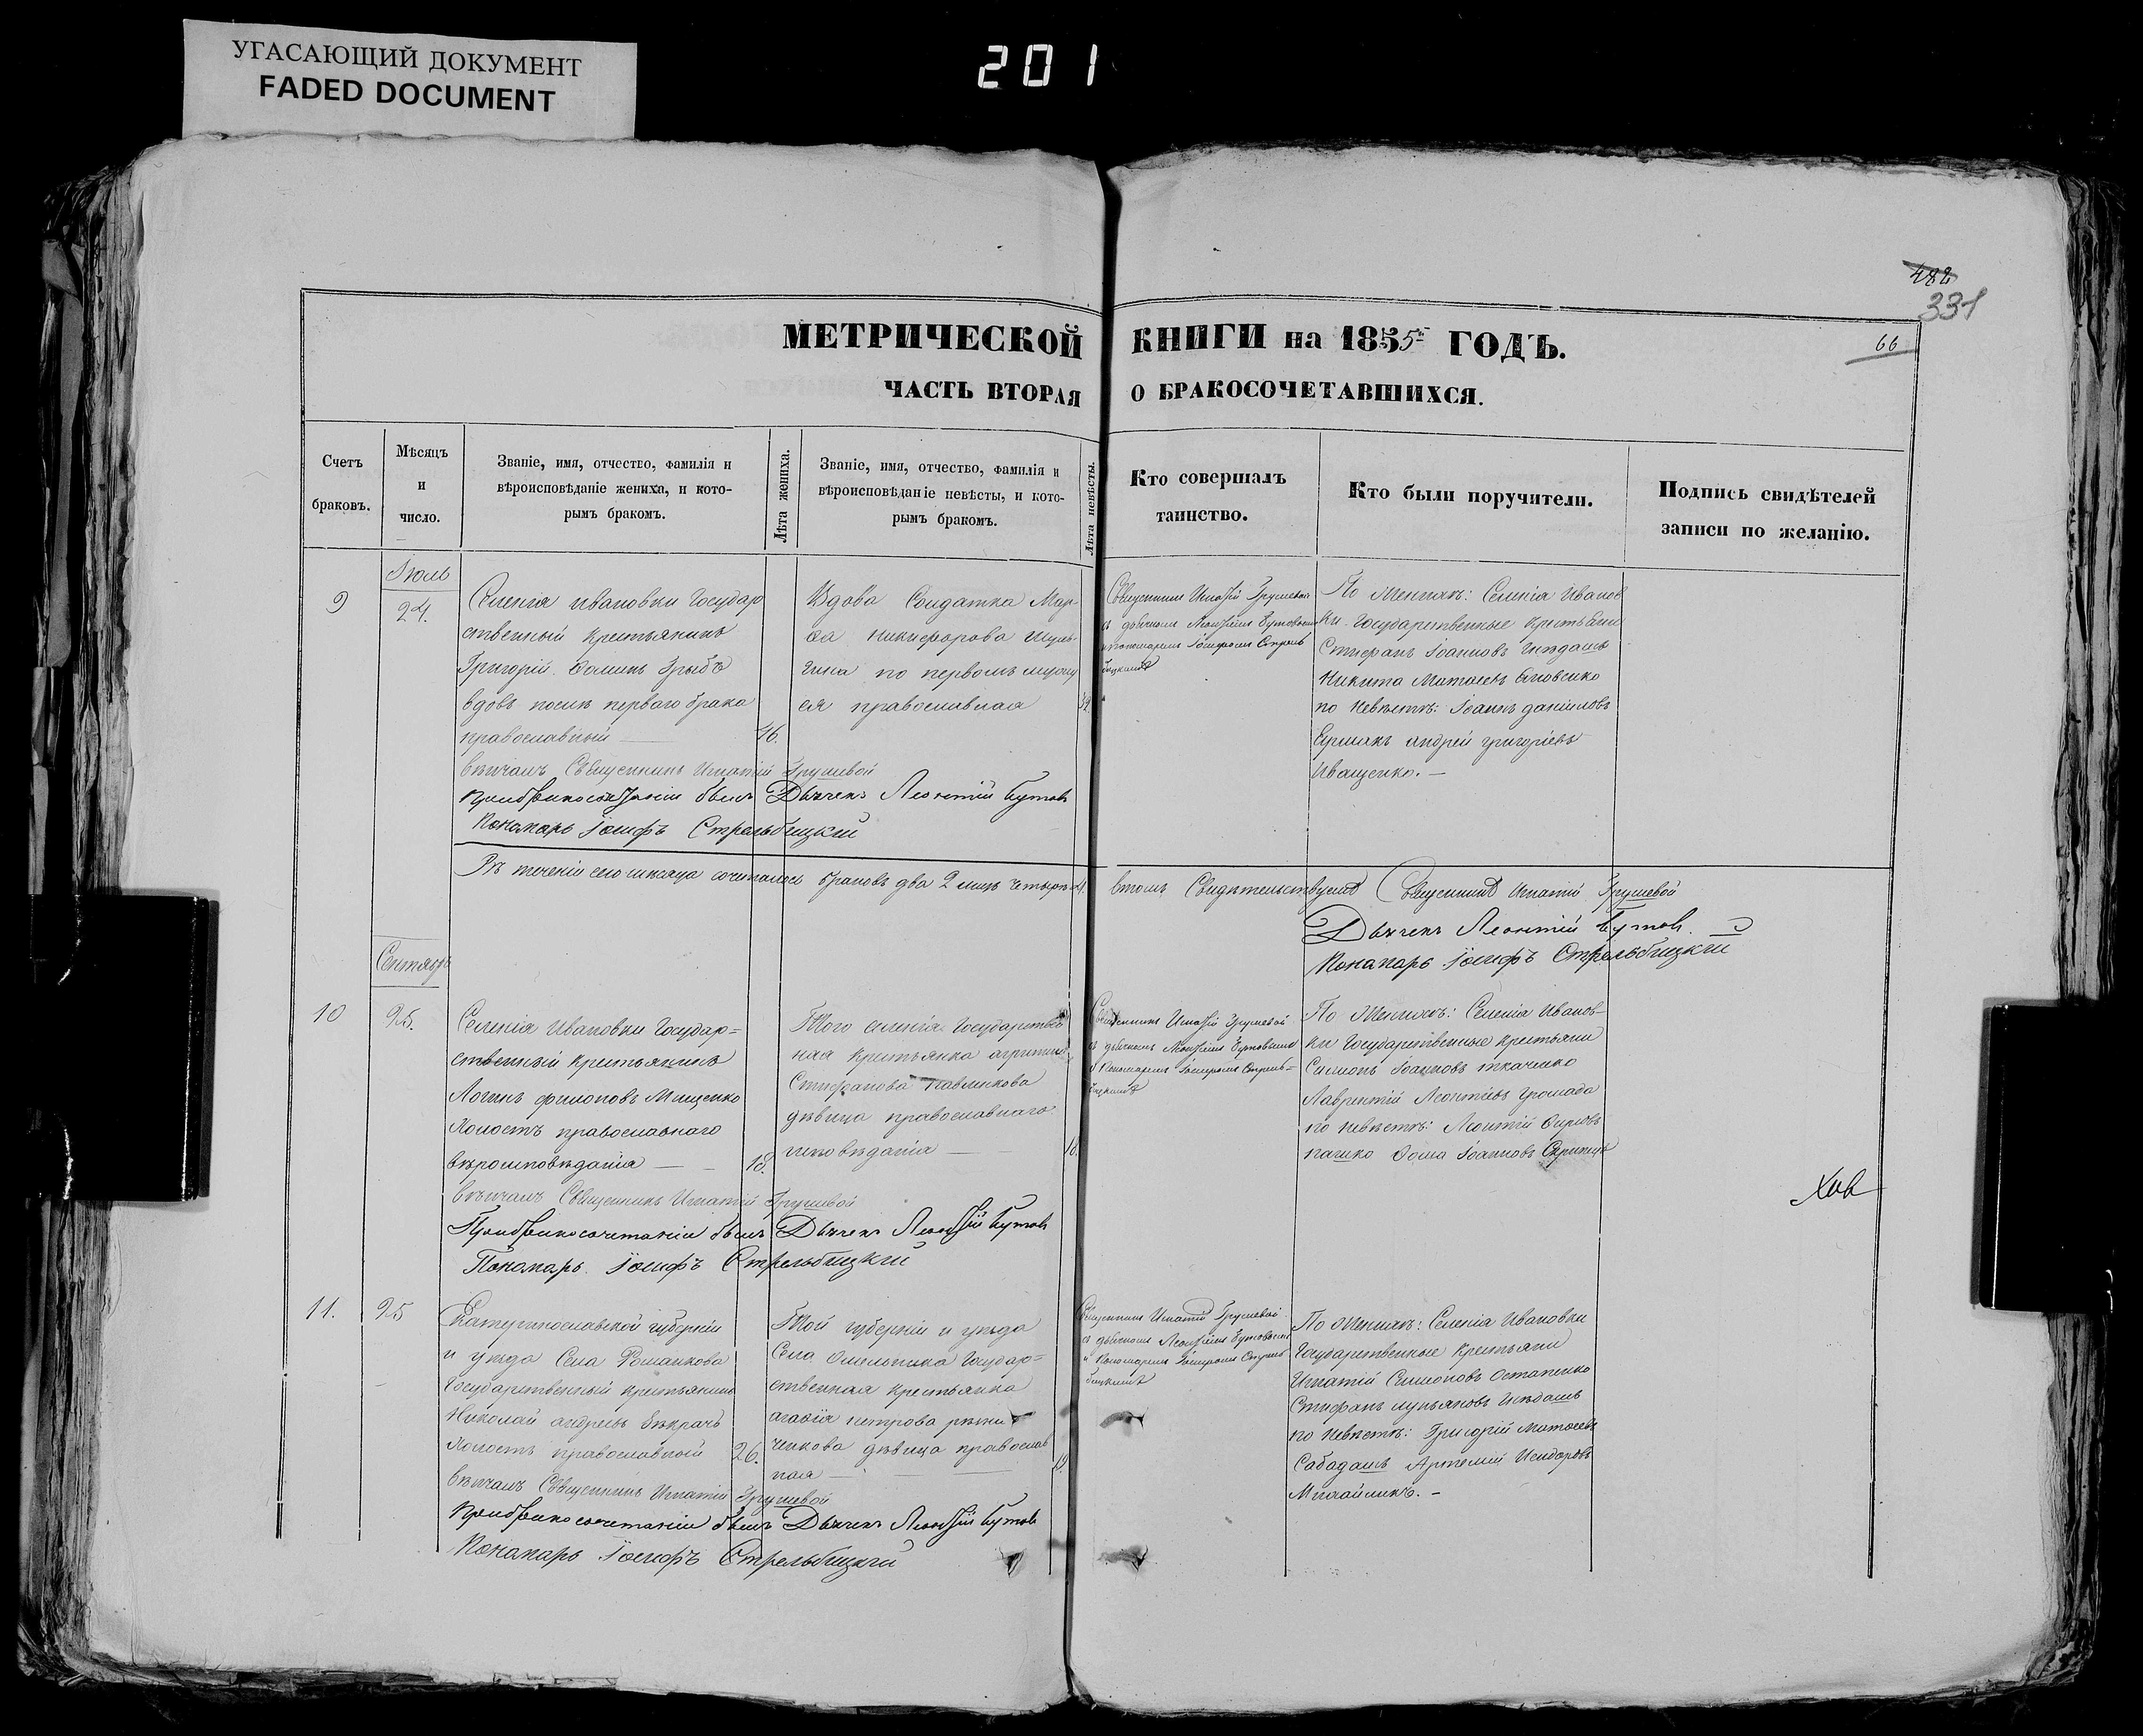 УГАСАЮЩИЙ ДОКУМЕНТ
FADED DOCUMENT
201
482
331
66
МЕТРИЧЕСКОЙ КНИГИ на 1855 ГОДЪ.
ЧАСТЬ ВТОРАЯ О БРАКОСОЧЕТАВШИХСЯ.
Счетъ
браковъ.
Мѣсяцъ
и
число.
Званіе, имя, отчество, фамилія и
вѣроисповѣданіе жениха, и кото-
рымъ бракомъ.
Лѣта жениха.
Званіе, имя, отчество, фамилія и
вѣроисповѣданіе невѣсты, и кото-
рымъ бракомъ.
Лѣта невѣсты.
Кто совершалъ
таинство.
Кто были поручители.
Подпись свидѣтелей
записи по желанію.
Іюль
9
24.
Селенія Ивановки Государ
ственный крестьянинъ
Григорій Фоминъ Грыбъ
вдовъ послѣ перваго брака
православный
46.
Вдова Солдатка Мар-
фа Никифорова
по первомъ мужу
ея православная
Священникъ Игнатій Грушевой
съ дьячкомъ Леонтіемъ Бутовымъ
и пономаремъ Іосифомъ Стрель
бицкимъ
По женихѣ: Селенія Иванов
ки Государственные крестьяне
Стефанъ Іоанновъ Гнѣдашъ
Никита Матвеевъ
по невѣстѣ: Іоаннъ Даниловъ
Ермакъ Андрей Григоріевъ
Иващенко. —
вѣнчалъ Священникъ Игнатій Грушевой
При бракосочетаніи былъ Дьячекъ Леонтій Бутовъ
Пономарь Іосифъ Стрельбицкій
Въ теченіи сего мѣсяца сочеталось браковъ два 2 лицъ четыре 4. в томъ Свидѣтельствуемъ Священникъ Игнатій Грушевой
Дьячекъ Леонтій Бутовъ.
Пономарь Іосифъ Стрельбицкій
Сентябрь
10
25.
Селенія Ивановки Государ=
ственный крестьянинъ
Логинъ Филиповъ Мищенко
Холостъ православнаго
вѣроисповѣданія —
18.
Того селенія Государствен
ная крестьянка
Стефанова Павленкова
дѣвица православнаго
исповѣданія —
18.
Священникъ Игнатій Грушевой
съ дьячкомъ Леонтіемъ Бутовымъ
и Пономаремъ Іосифомъ Стрель=
бицкимъ
По Женихѣ: Селенія Иванов-
ки Государственные крестьяне
Симіонъ Іоанновъ Ткаченко
Лаврентій Леонтіевъ Громада
по невѣстѣ: Леонтій
Фома Іоанновъ
вѣнчалъ Священникъ Игнатій Грушевой
При бракосочетаніи былъ Дьячекъ Леонтій Бутовъ
Пономарь Іосифъ Стрельбицкій
11.
25
Екатеринославской губерніи
и уѣзда Села Романкова
Государственный крестьянинъ
Николай Андреевъ
Холостъ православный
26.
Той губерніи и уѣзда
Села Омельника Государ=
ственная крестьянка
Агафія Петрова
дѣвица православ
ная —
19.
Священникъ Игнатій Грушевой
съ дьячкомъ Леонтіемъ Бутовымъ
и Пономаремъ Іосифомъ Стрель
бицкимъ
По женихѣ: Селенія Ивановки
Государственные крестьяне
Игнатій Симіоновъ Остапенко
Стефанъ Лукьяновъ Гнѣдашъ
по невѣстѣ: Григорій Матвеевъ
Сабадашъ Артемій Исидоровъ
Михайликъ. —
вѣнчалъ Священникъ Игнатій Грушевой
При бракосочетаніи былъ Дьячекъ Леонтій Бутовъ
Пономарь Іосифъ Стрельбицкій